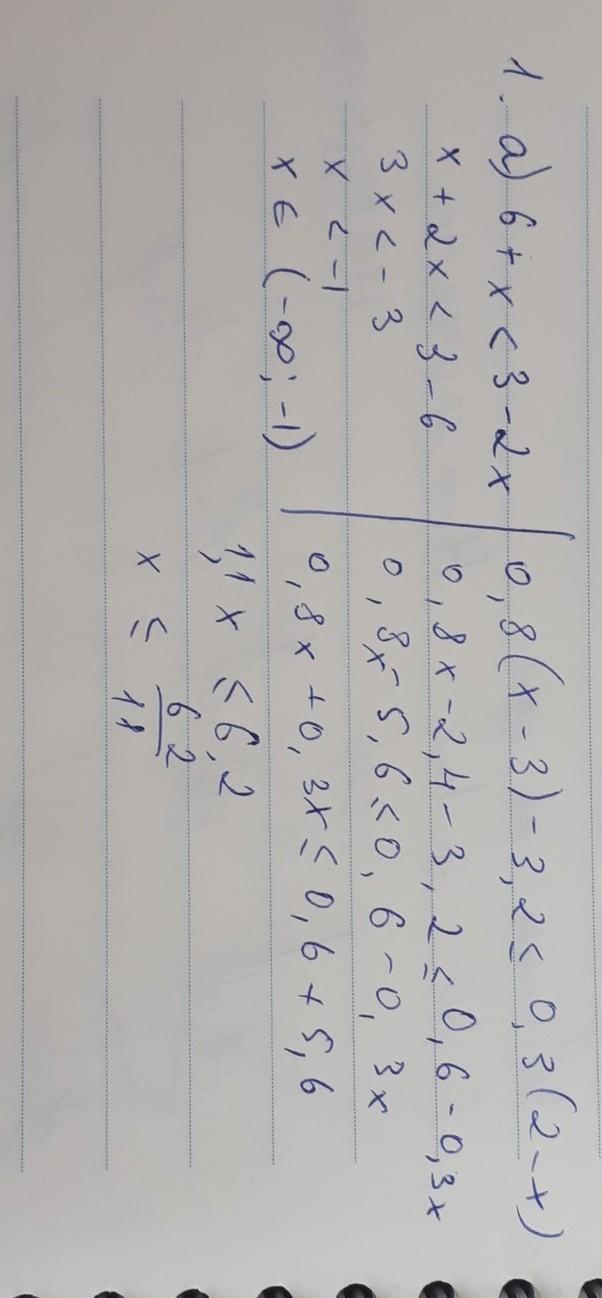 1. a) 6 + x < 3 - 2x
x + 2x < 3 - 6
3x < - 3
x < -1
x ∈ (-∞; -1)
0,8(x - 3) - 3,2 ≤ 0,3(2 - x)
0,8x - 2,4 - 3,2 ≤ 0,6 - 0,3x
0,8x - 5,6 ≤ 0,6 - 0,3x
0,8x + 0,3x ≤ 0,6 + 5,6
1,1x ≤ 6,2
x ≤ 62/11